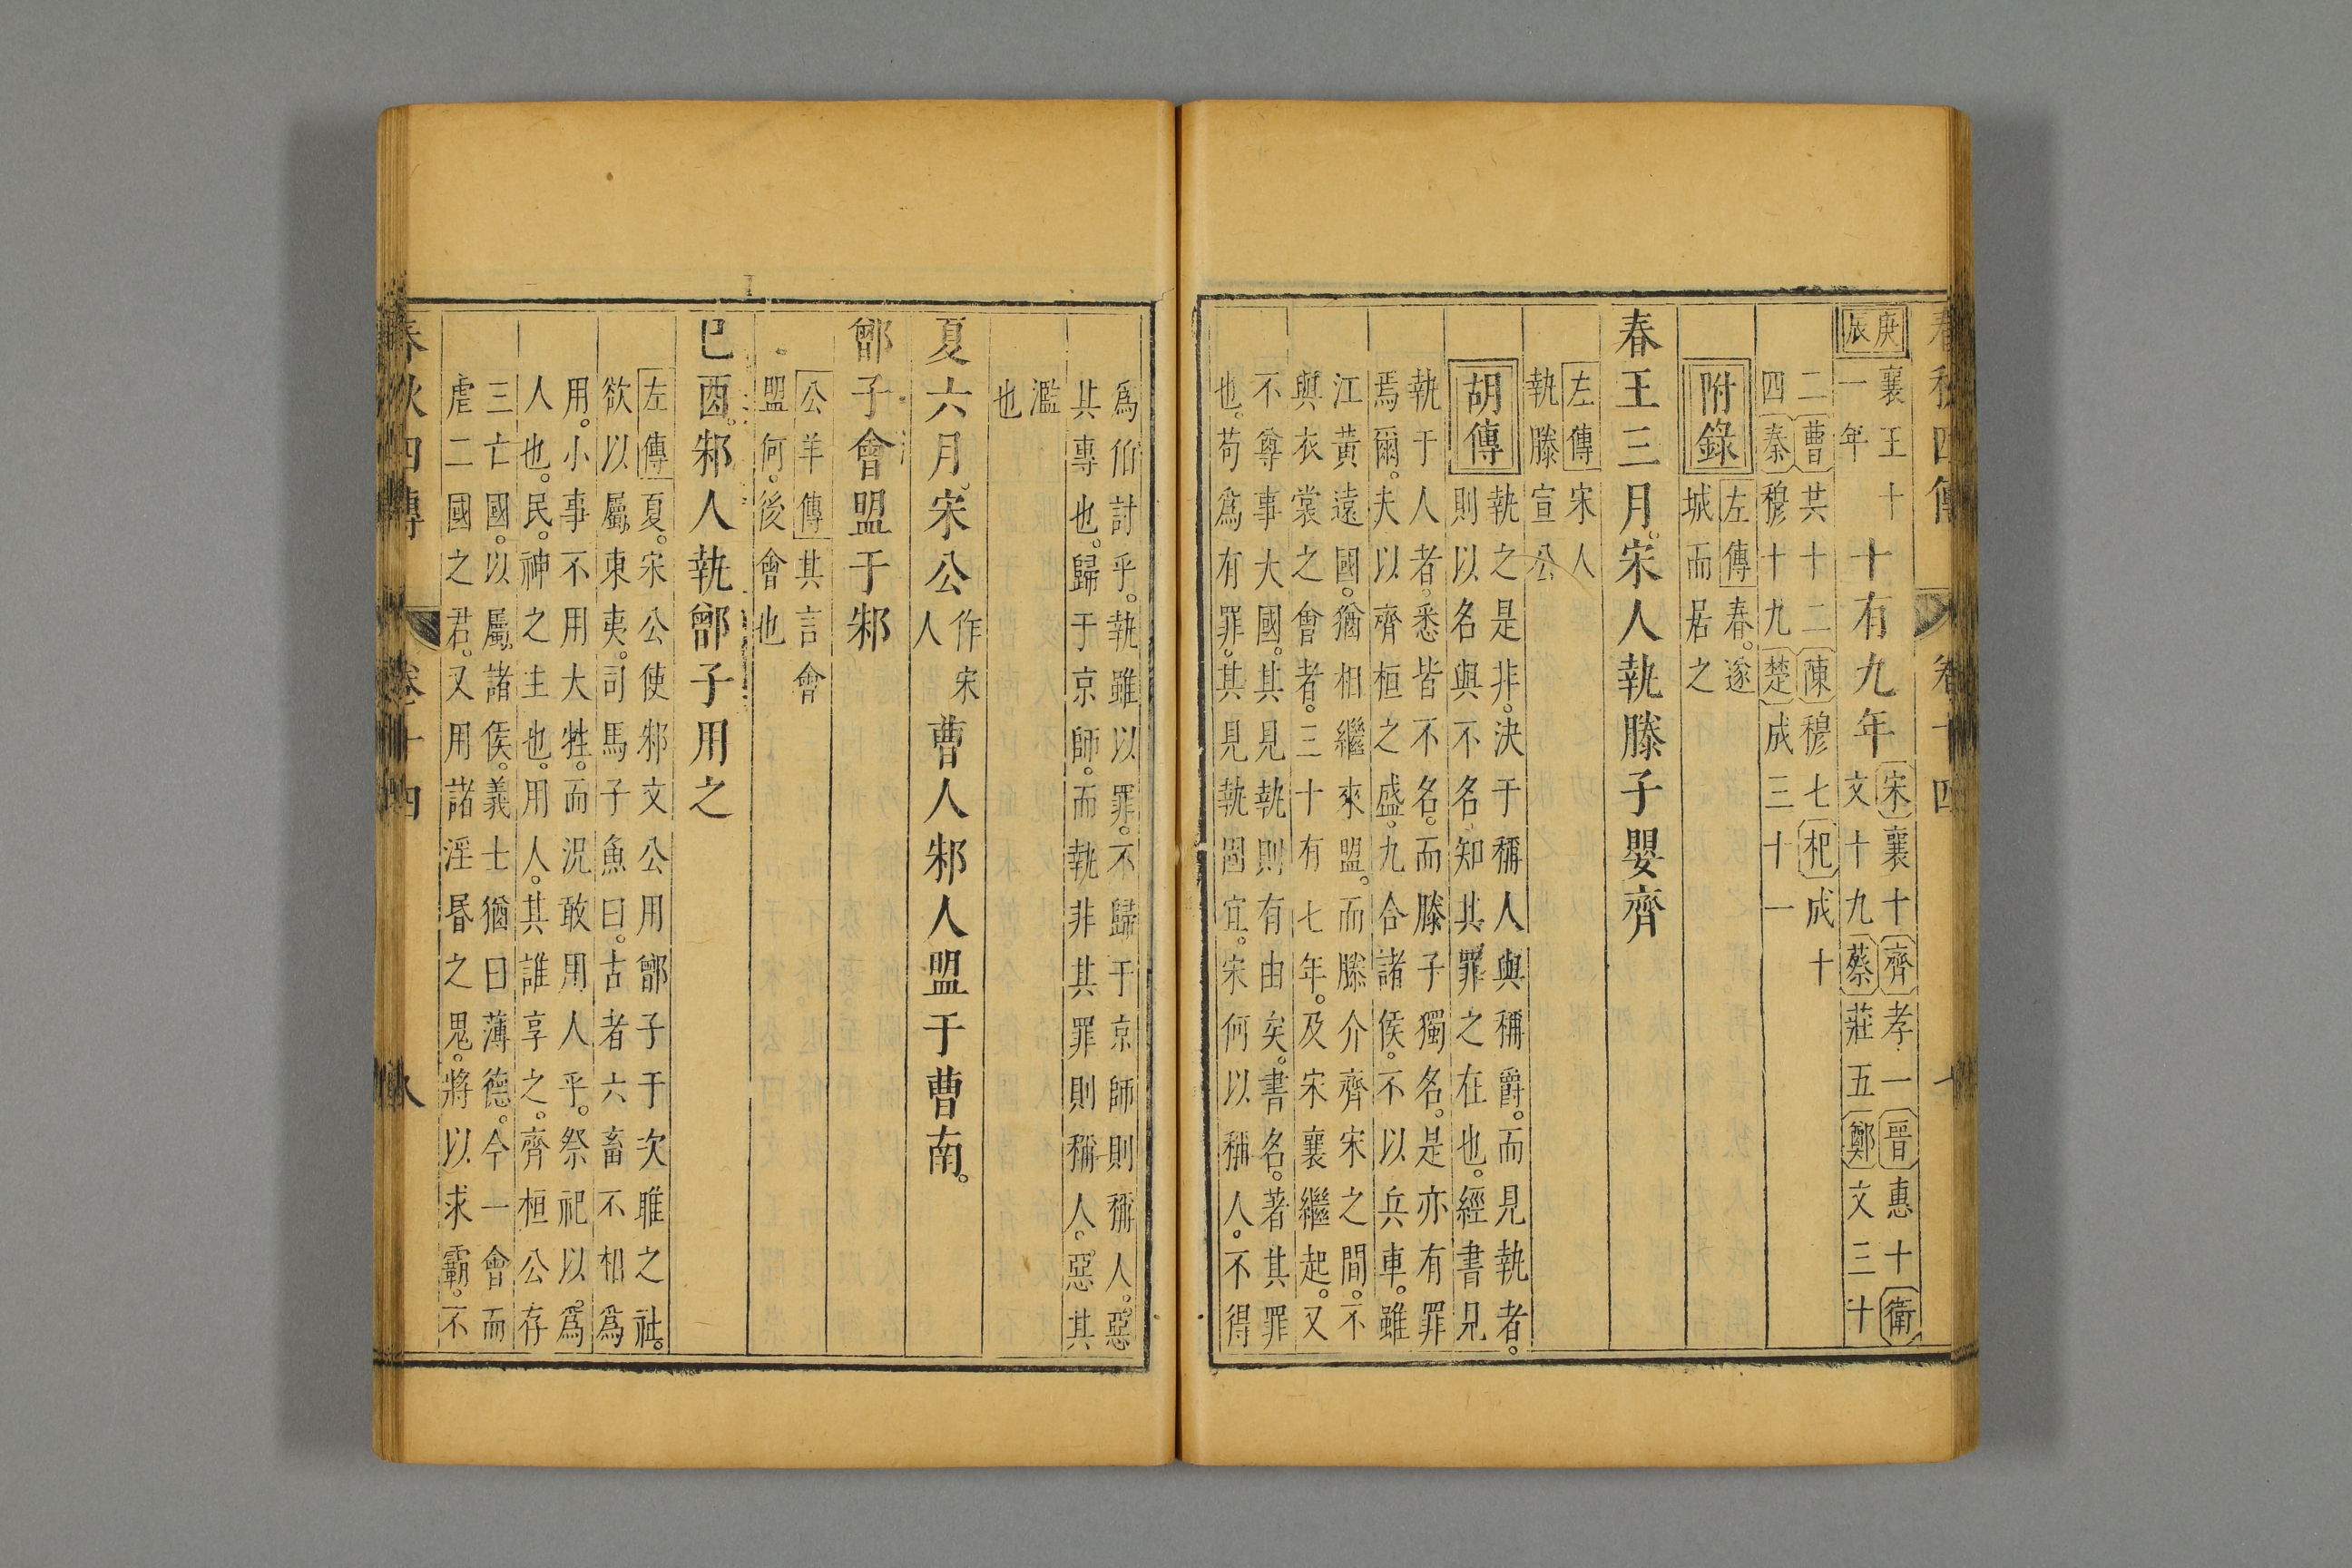 春秋四傳 卷十四 七
庚辰
襄王十
一年
十有九年
宋襄十齊孝一晉惠十衛
文十九蔡莊五鄭文三十
二曹共十二陳穆七杞成十
四秦穆十九楚成三十一
附錄
左傳春遂
城而居之
春王三月宋人執滕子嬰齊
左傳宋人
執滕宣公
胡傳
執之是非決于稱人與稱爵而見執者
則以名與不名知其罪之在也經書見
執于人者悉皆不名而滕子獨名是亦有罪
焉爾夫以齊桓之盛九合諸侯不以兵車雖
江黃遠國猶相繼來盟而滕介齊宋之間不
與衣裳之會者三十有七年及宋襄繼起又
不尊事大國其見執則有由矣書名著其罪
也苟為有罪其見執固宜宋何以稱人不得
為伯討乎執雖以罪不歸于京師則稱人惡
其專也歸于京師而執非其罪則稱人惡其
濫
也
夏六月宋公
作宋
人
曹人邾人盟于曹南
鄫子會盟于邾
公羊傳其言會
盟何後會也
巳酉邾人執鄫子用之
左傳夏宋公使邾文公用鄫子于次睢之社
欲以屬東夷司馬子魚曰古者六畜不相為
用小事不用大牲而況敢用人乎祭祀以為
人也民神之主也用人其誰享之齊桓公存
三亡國以屬諸侯義士猶曰薄德今一會而
虐二國之君又用諸淫昬之鬼將以求霸不
春秋四傳 卷十四 八